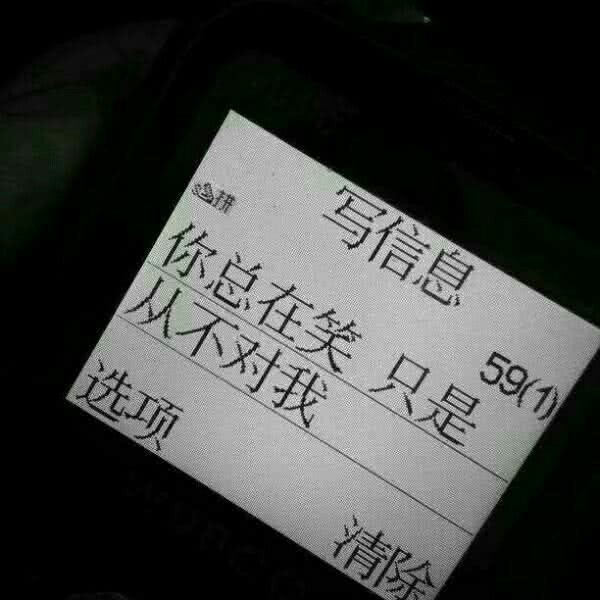 写信息
59(1)
你总在笑 只是
从不对我
选项
清除